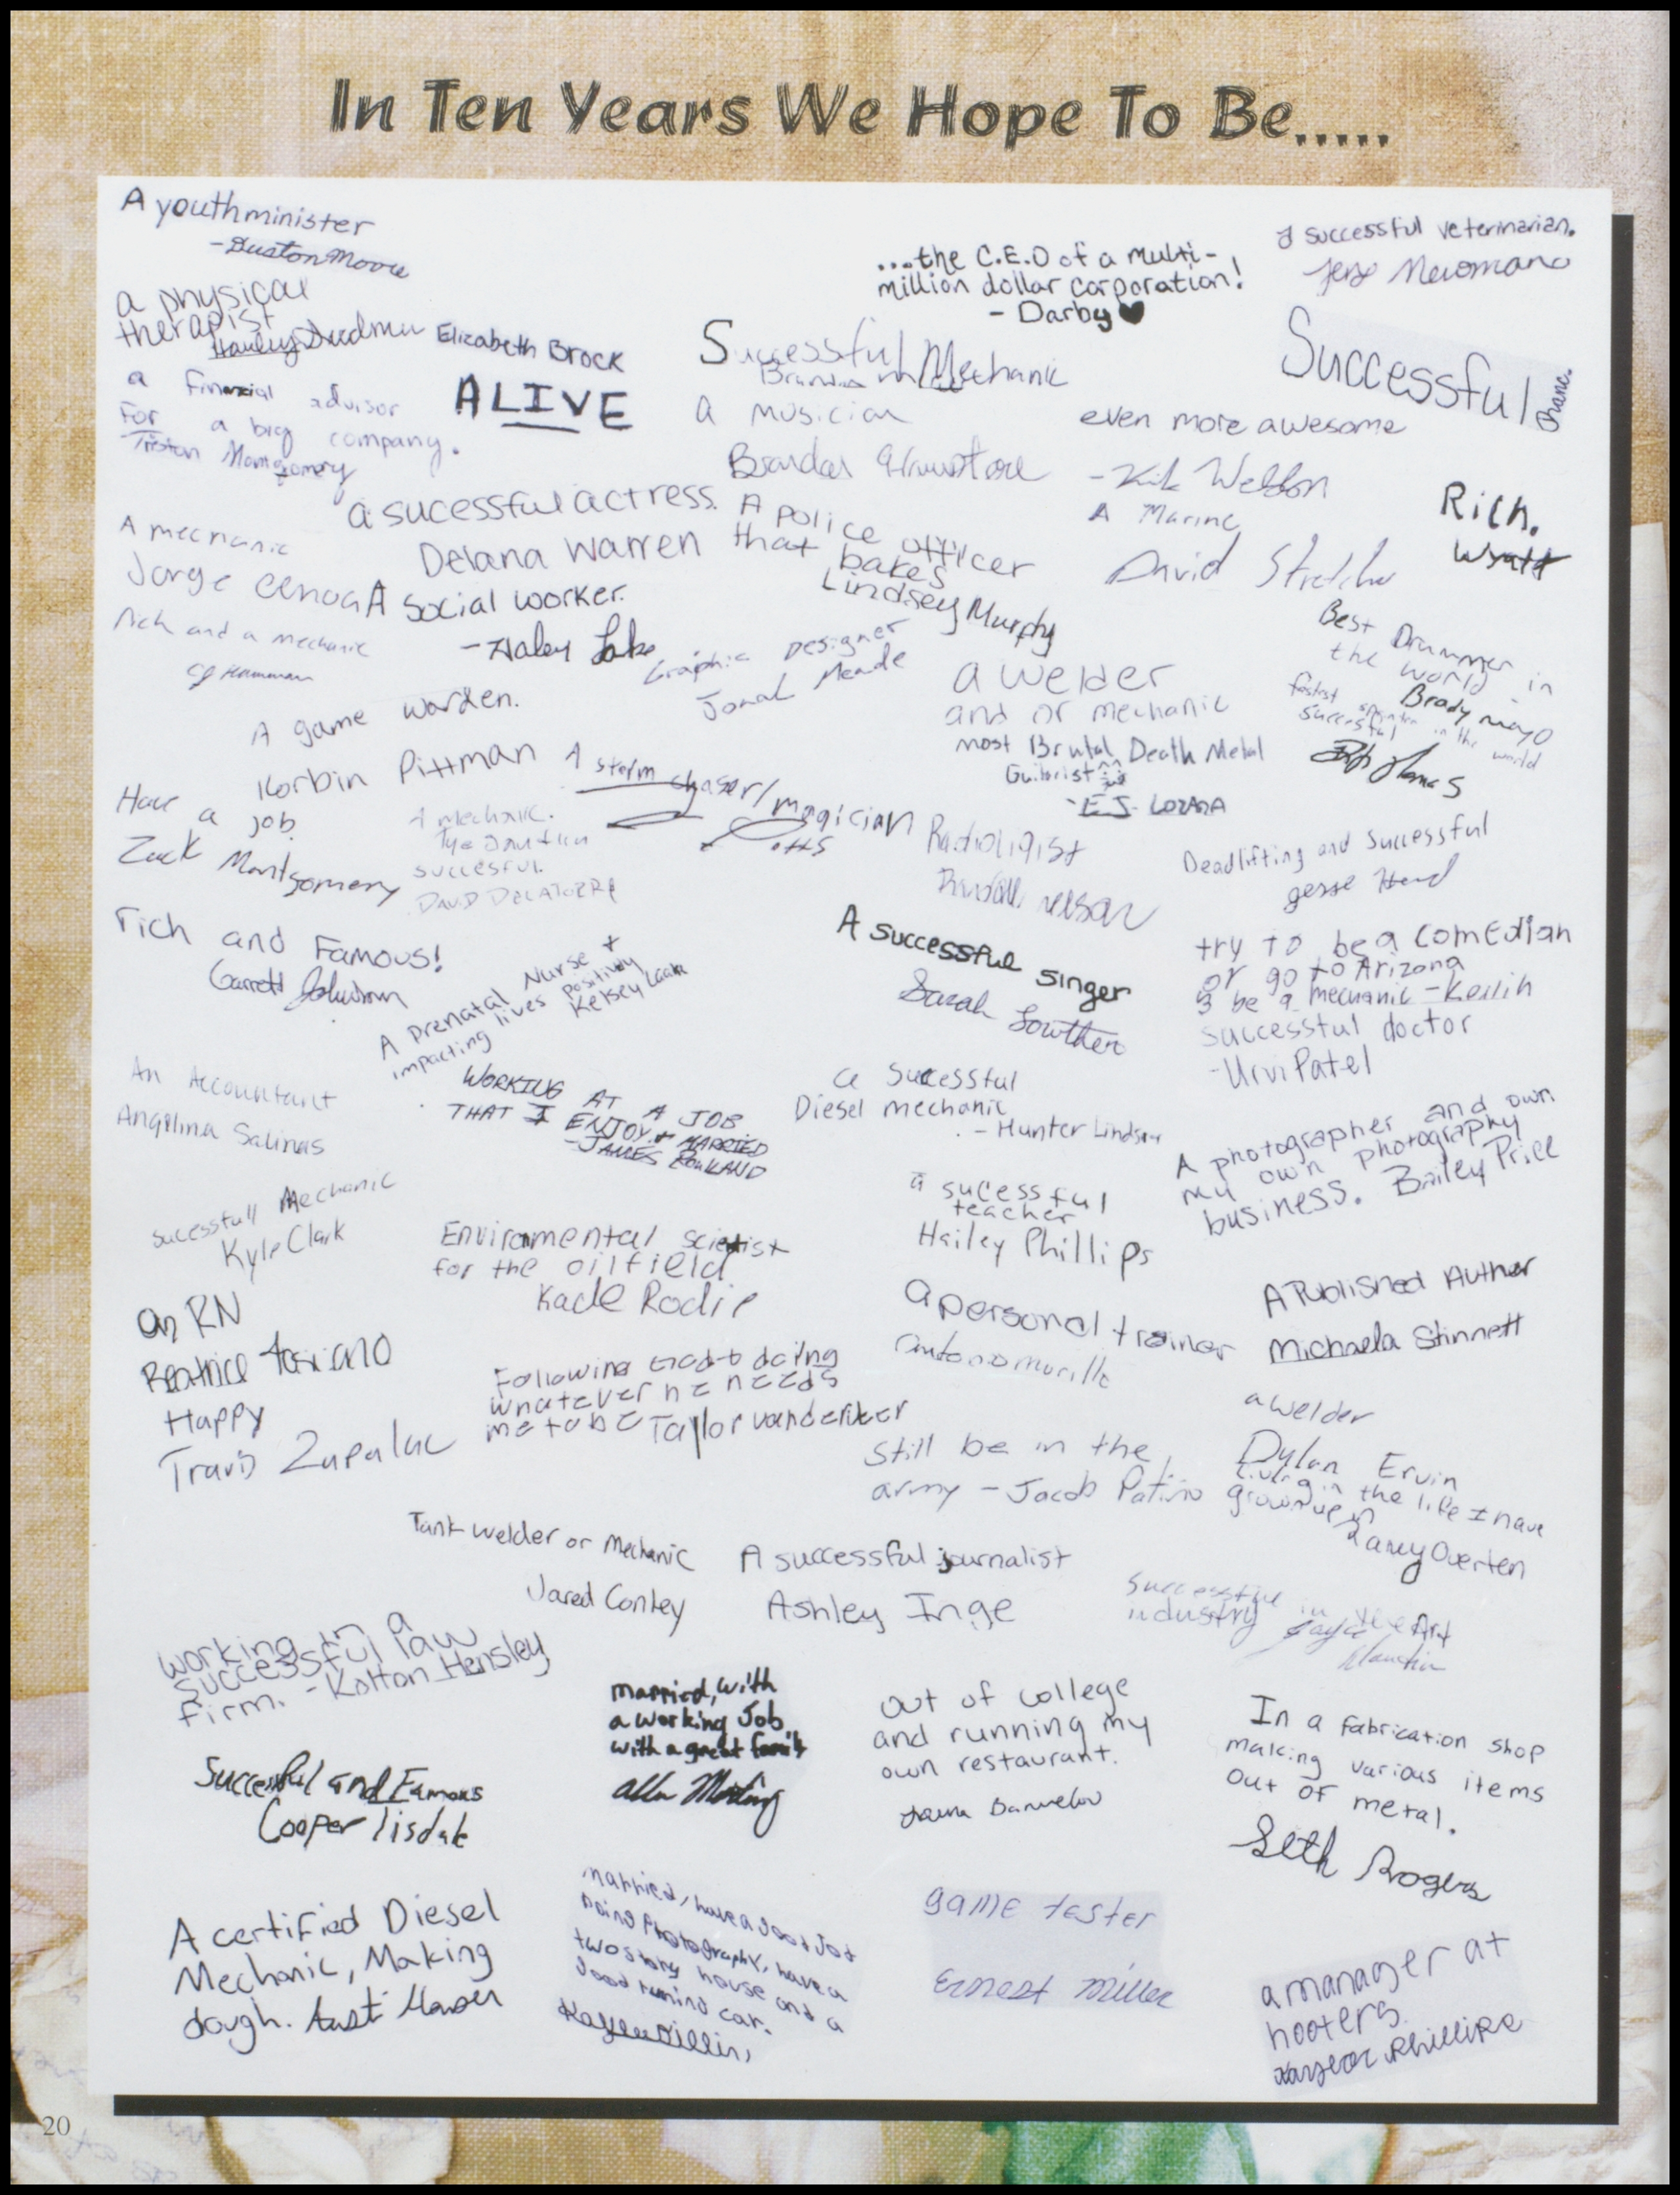 In Ten Years We Hope To Be.....
A youth minister
- Duston Moore
a physical
therapist
a financial advisor
For a big company.
Triston Montgomery
Elizabeth Brock
ALIVE
...the C.E.O of a multi-
million dollar corporation!
- Darby
a successful veterinarian.
Successful Mechanic
a musician
Successful
Shane.
even more awesome
- Kirk Weldon
a sucessful actress.
Delana Warren
A police officer
that bakes
Lindsey Murphy
A Marine
David
Rich.
Wyatt
A mechanic
Jorge
A social worker.
- Haley Lake
Rich and a mechanic
CJ Hamman
Graphic Designer
Jonah Meade
Best Drummer in
the world -
Brady mayo
fastest sprinter in the world
successful
A game warden.
Korbin Pittman
a welder
and or mechanic
most Brutal Death Metal
Guitarist
- E.J. Lozana
A storm chaser/magician
Potts
Have a job.
Zack Montgomery
A mechanic.
succesful.
DAVID DELATORRE
Radioligist
Randall Nelson
Deadlifting and Successful
Jesse Head
rich and Famous!
Garrett Johnson
A Prenatal Nurse +
impacting lives positivly
Kelsey
A successful singer
Sarah Lowthen
try to be a comedian
or go to Arizona
& be a mechanic - Keilih
successful doctor
- Urvi Patel
An Accountant
Angelina Salinas
WORKING AT A JOB
THAT I ENJOY + MARRIED
- JAMES ROWLAND
a sucessful
Diesel mechanic
- Hunter Lindsey
A photographer and own
my own photography
business. Bailey Price
sucessfull Mechanic
Kyle Clark
Enviromental scietist
for the oilfield
Kade Rodie
a sucessful
teacher
Hailey Phillips
an RN
Beatrice
a personal trainer
antonio murillo
A Published Author
Michaela Stinnett
Happy
Travis Zapalac
Following God + doing
whatever he needs
me to be Taylor Vanderiker
a welder
Dylan Ervin
Still be in the
army - Jacob Patino
Living in the life I have
grown up in
Laney Overten
Tank welder or Mechanic
Jared Conley
A successful journalist
Ashley Inge
Successful in the Art
industry
working in a
successful law
firm. - Kolton Hensley
married, with
a working Job
with a great family
out of college
and running my
own restaurant.
In a fabrication shop
making various items
out of metal.
Seth Rogers
Successful and Famous
Cooper Tisdale
A certified Diesel
Mechanic, Making
dough.
married, have a good Job
Doing Photography, have a
two story house and a
good running car.
game tester
Ernest Miller
a manager at
hooters.
Phillips
20